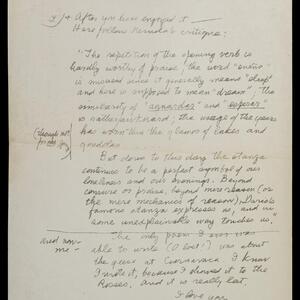 x) + After you have enjoyed it —
Here follow Neruda's critique:
"The repetition of the opening verb is
hardly worthy of praise; the word "sueño"
is misused since it generally means "sleep"
and here is supposed to mean "dream"; the
similarity of "aguardar" and "esperar"
is rather awkward; the usage of the
has worn thin the glamor of lakes and
But down to this day the stanza
continues to be a perfect symbol of our
loneliness and our Beyond
censure or praise, beyond mere reason (or
the mere mechanics of reason), Dario's
famous stanza expresses us, and in
some unexplainable way touches us."
(though not
for me
and now
me —
the only poem I ever was
able to write (O lost!) was about
the at Cuernavaca I know
I wrote it, because I showed it to the
and it is really lost.
I love you